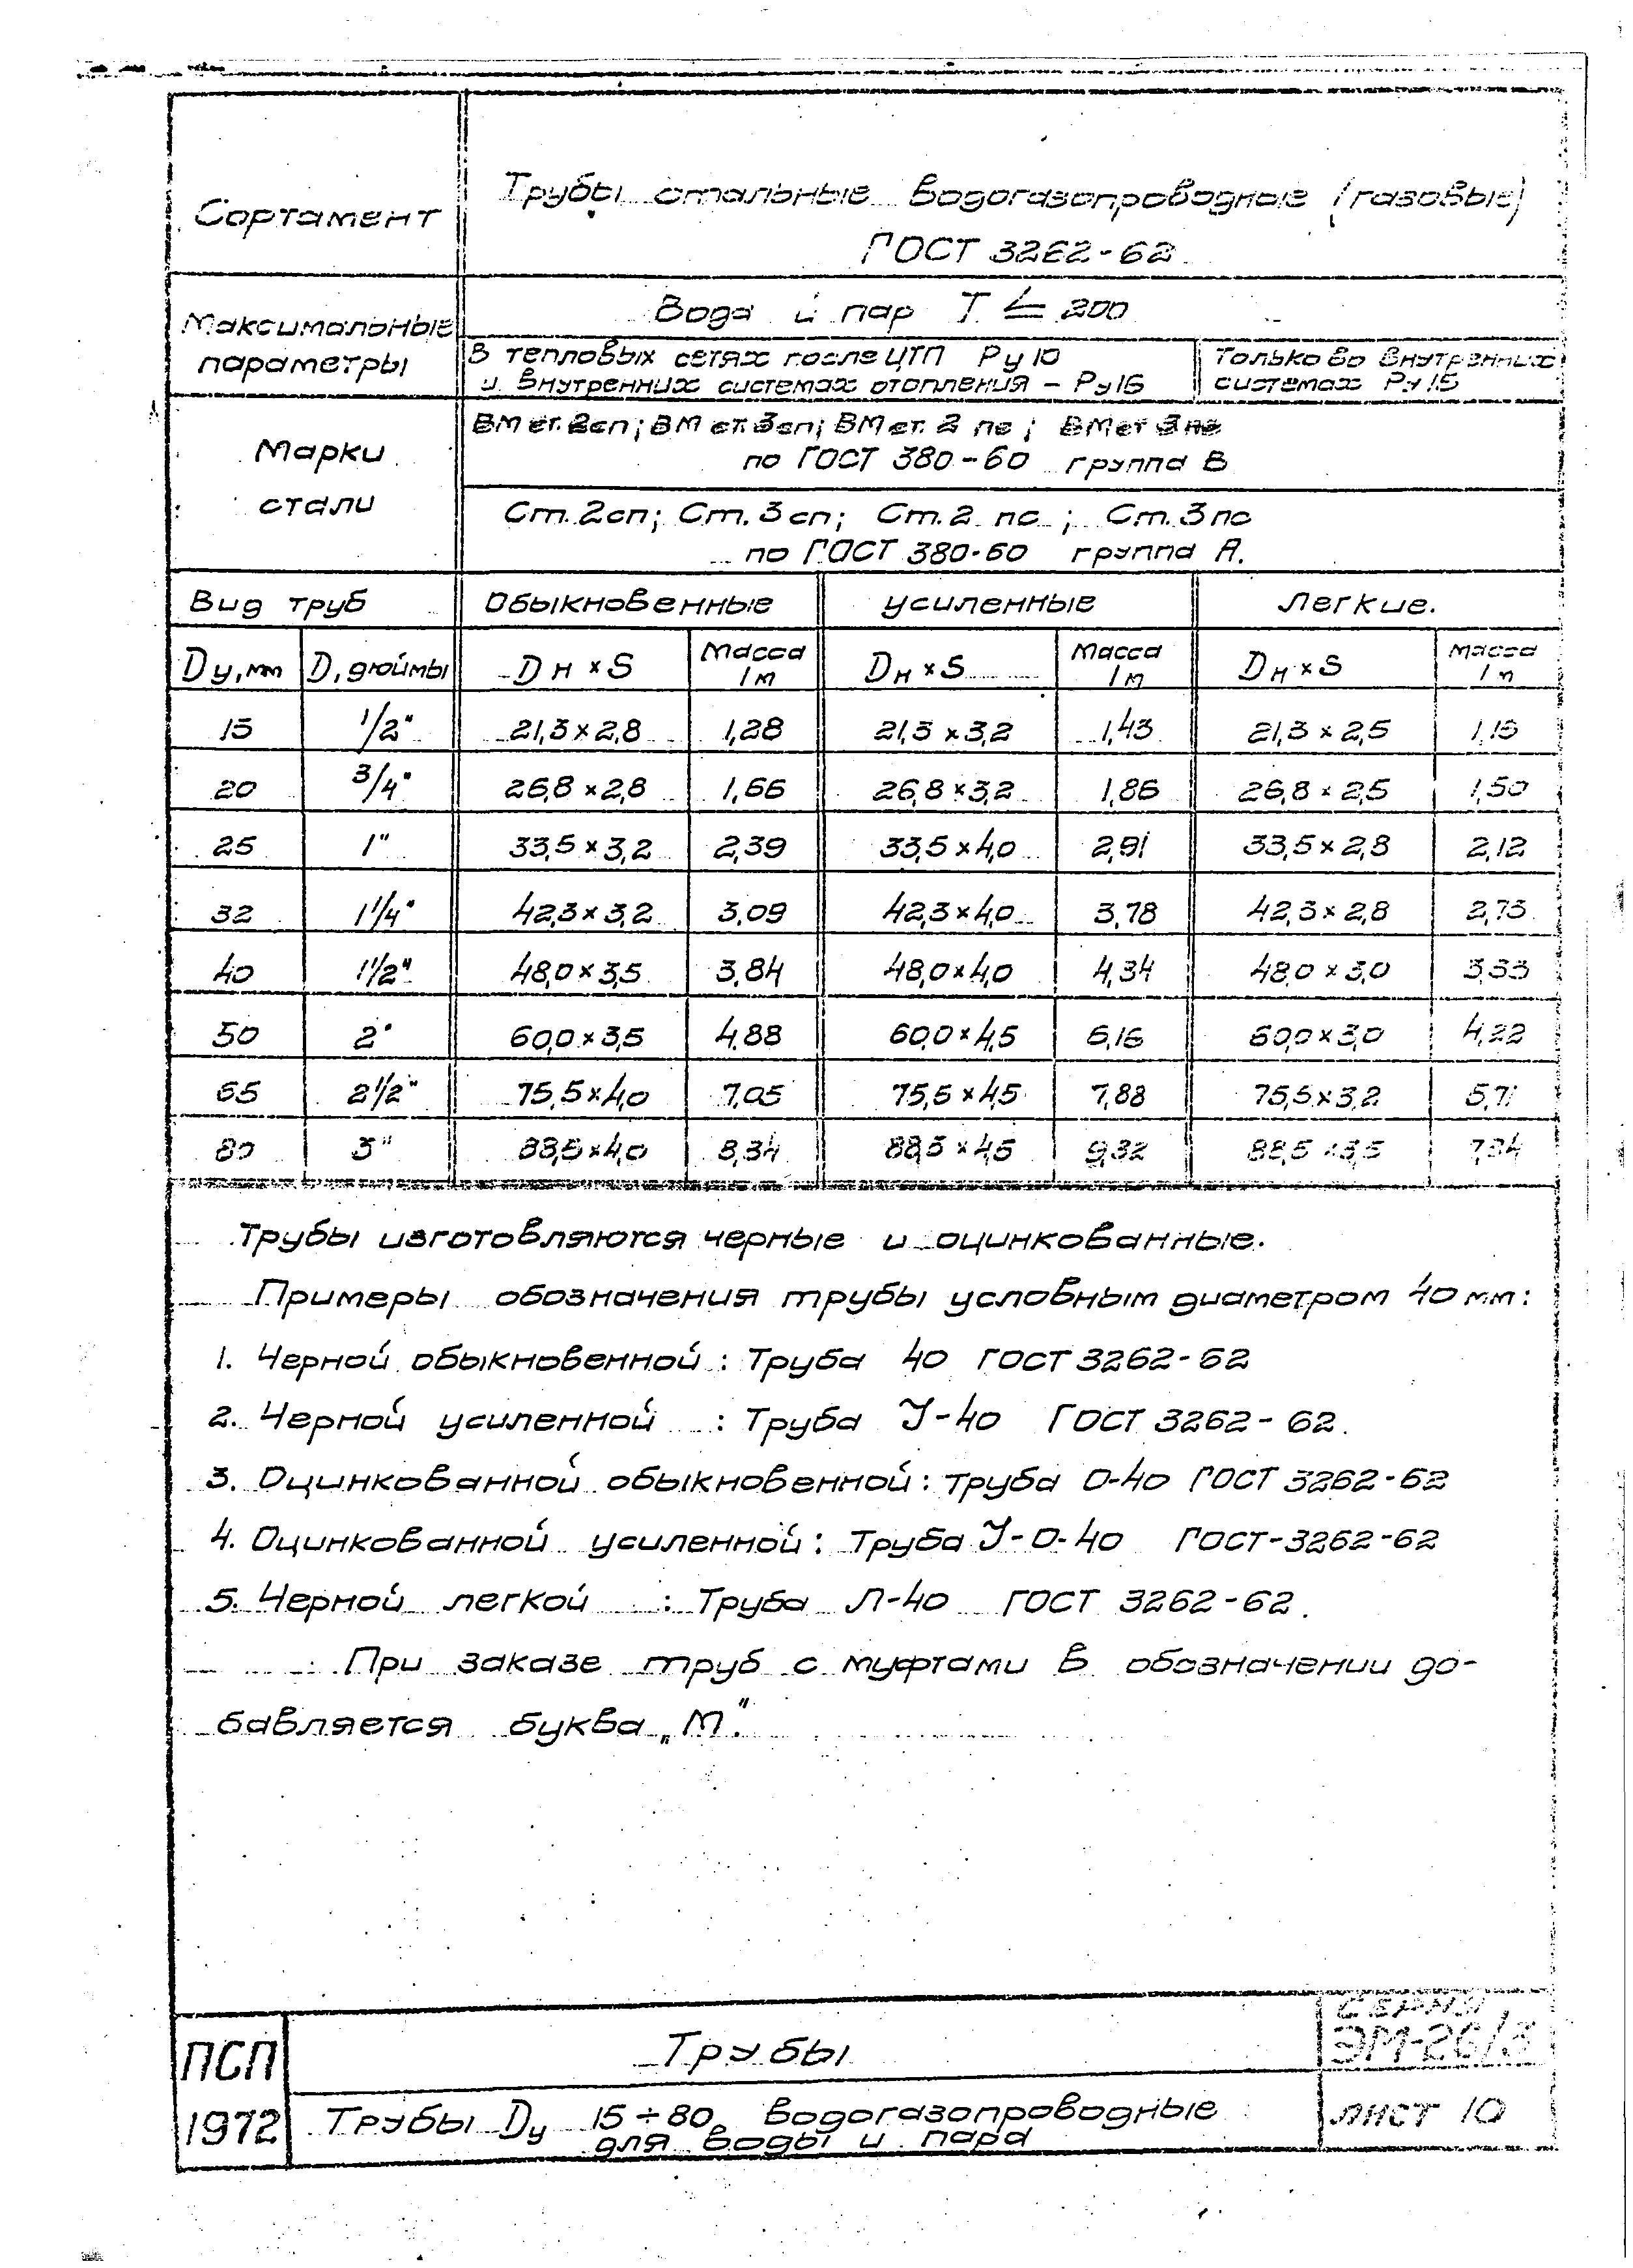 Сортамент
Трубы стальные водогазопроводные (газовые)
ГОСТ 3262-62
Максимальные
параметры
Вода и пар T ≤ 200
В тепловых сетях после ЦТП Ру 10
и внутренних системах отопления – Ру16
только во внутренних
системах Ру
Марки
стали
ВМ ст. 2сп; ВМ ст. 3сп; ВМ ст. 2 пс; ВМ ст 3 пс
по ГОСТ 380-60 группа В
Ст. 2сп; Ст. 3 сп; Ст. 2 пс; Ст. 3 пс
по ГОСТ 380-60 группа А.
Вид труб Обыкновенные усиленные легкие.
Dу, мм D, дюймы Dн × S Масса 1м Dн × S Масса 1м Dн × S Масса 1м
15 1/2" 21,3×2,8 1,28 21,3×3,2 1,43 21,3×2,5 1,16
20 3/4" 26,8×2,8 1,66 26,8×3,2 1,86 26,8×2,5 1,50
25 1" 33,5×3,2 2,39 33,5×4,0 2,91 33,5×2,8 2,12
32 1 1/4" 42,3×3,2 3,09 42,3×4,0 3,78 42,3×2,8 2,73
40 1 1/2" 48,0×3,5 3,84 48,0×4,0 4,34 48,0×3,0 3,33
50 2" 60,0×3,5 4,88 60,0×4,5 6,16 60,0×3,0 4,22
65 2 1/2" 75,5×4,0 7,05 75,5×4,5 7,88 75,5×3,2 5,71
80 3" 88,5×4,0 8,34 88,5×4,5 9,32 88,5×3,5 7,34
Трубы изготовляются черные и оцинкованные.
Примеры обозначения трубы условным диаметром 40 мм:
1. Черной обыкновенной: Труба 40 ГОСТ 3262-62
2. Черной усиленной : Труба У-40 ГОСТ 3262-62.
3. Оцинкованной обыкновенной: Труба О-40 ГОСТ 3262-62
4. Оцинкованной усиленной: Труба У-О-40 ГОСТ-3262-62
5. Черной легкой : Труба Л-40 ГОСТ 3262-62.
При заказе труб с муфтами в обозначении до-
бавляется буква „М".
ПСП
1972
Трубы
Трубы Dу 15÷80 водогазопроводные
для воды и пара
СЕРИЯ
ЭМ-26/3
ЛИСТ 10